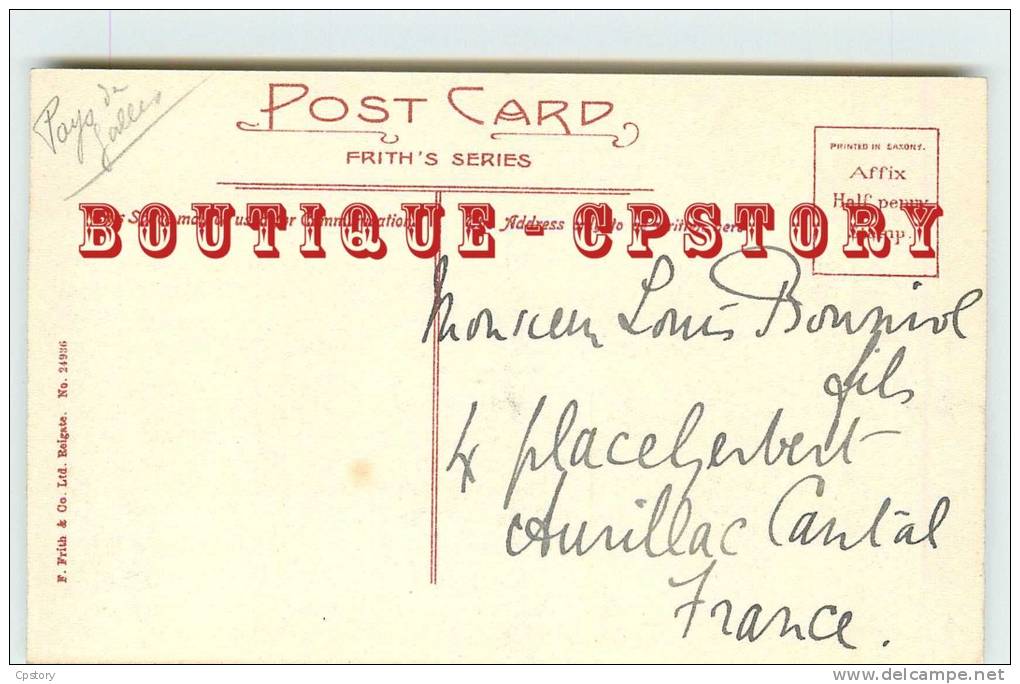 Pays de
Galles
POST CARD
FRITH'S SERIES
PRINTED IN SAXONY.
Affix
Half-penny
BOUTIQUE - CPSTORY
Address
Monsieur Louis Bonniol
fils
4 place Gerbert
Aurillac Cantal
France.
F. Frith & Co. Ltd. Reigate. No. 24936
Cpstory
www.delcampe.net